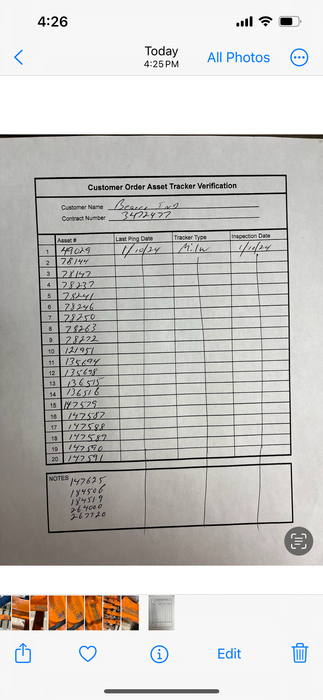 4:26
Today
4:25 PM
All Photos
Customer Order Asset Tracker Verification
Customer Name
Contract Number 3472477
Asset # Last Ping Date Tracker Type Inspection Date
1 49029 1/10/24 Milw 1/10/24
2 78144
3 78147
4 78237
5 78241
6 78246
7 78250
8 78263
9 78272
10 121951
11 135694
12 135698
13 136515
14 136516
15 147579
16 147587
17 147588
18 147589
19 147590
20 147591
NOTES 147625
184506
184519
264000
267720
Edit